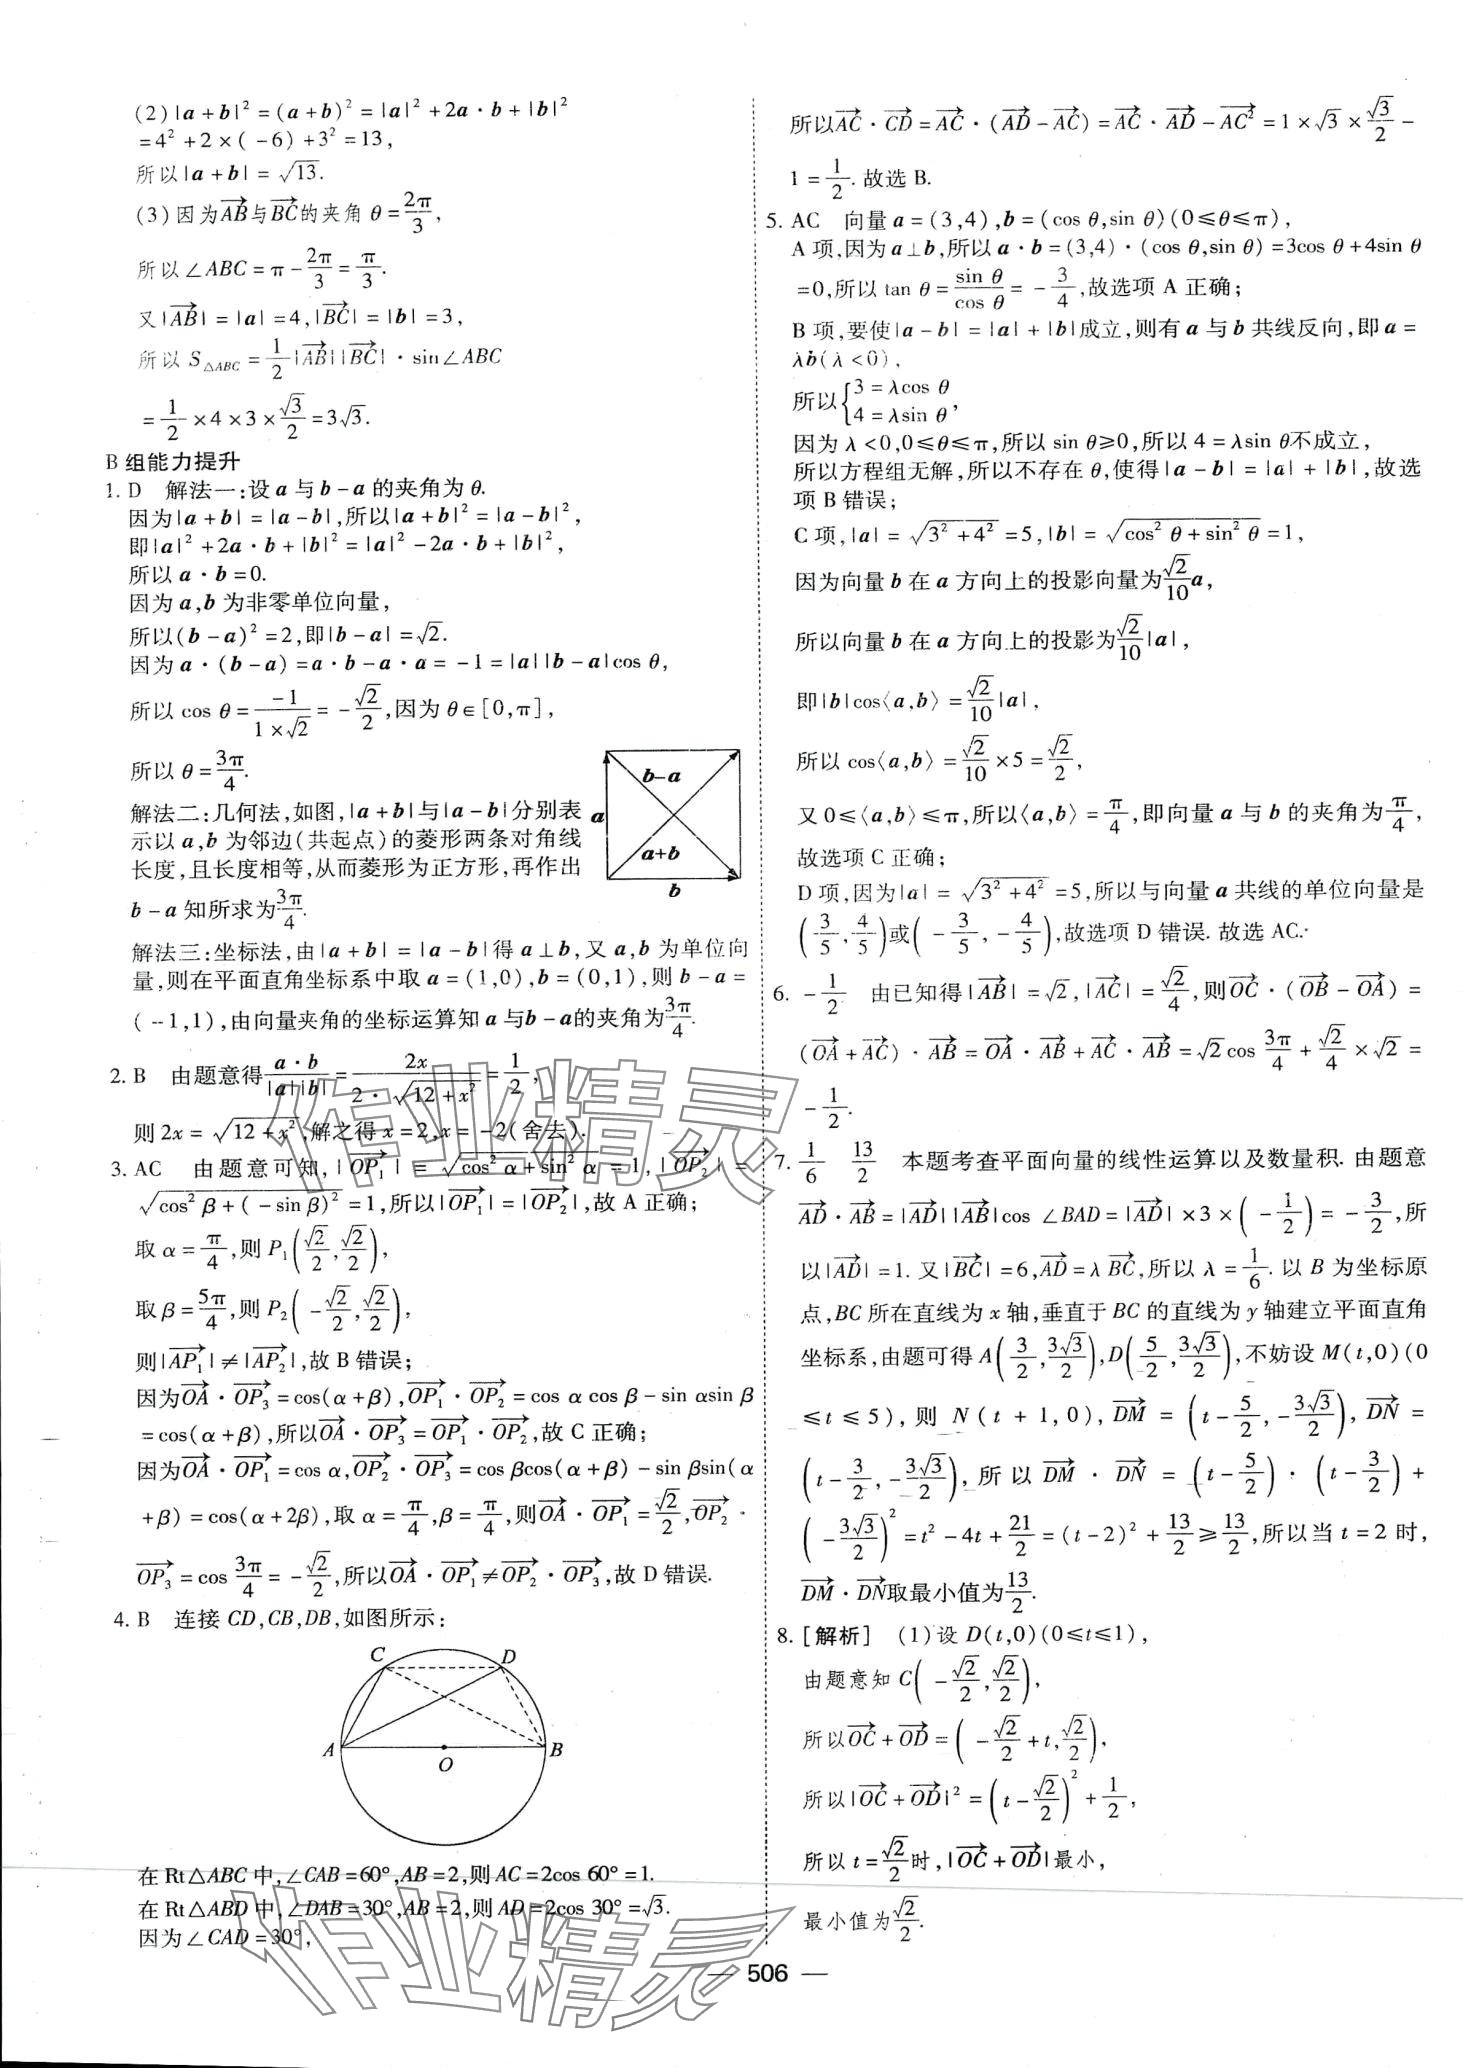 (2)|a+b|²=(a+b)²=|a|²+2a·b+|b|²
=4²+2×(-6)+3²=13,
所以|a+b|=√13.
(3)因为AB→与BC→的夹角θ=2π/3,
所以∠ABC=π-2π/3=π/3.
又|AB→|=|a|=4,|BC→|=|b|=3,
所以 S△ABC=1/2|AB→||BC→|·sin∠ABC
=1/2×4×3×√3/2=3√3.
B 组能力提升
1. D 解法一:设 a 与 b-a 的夹角为 θ.
因为|a+b|=|a-b|,所以|a+b|²=|a-b|²,
即|a|²+2a·b+|b|²=|a|²-2a·b+|b|²,
所以 a·b=0.
因为 a,b 为非零单位向量,
所以(b-a)²=2,即|b-a|=√2.
因为 a·(b-a)=a·b-a·a=-1=|a||b-a|cos θ,
所以 cos θ=-1/(1×√2)=-√2/2,因为 θ∈[0,π],
所以 θ=3π/4.
解法二:几何法,如图,|a+b|与|a-b|分别表
示以 a,b 为邻边(共起点)的菱形两条对角线
长度,且长度相等,从而菱形为正方形,再作出
b-a 知所求为3π/4.
b-a
a
a+b
b
解法三:坐标法,由|a+b|=|a-b|得 a⊥b,又 a,b 为单位向
量,则在平面直角坐标系中取 a=(1,0),b=(0,1),则 b-a=
(-1,1),由向量夹角的坐标运算知 a 与b-a的夹角为3π/4.
2. B 由题意得a·b/(|a||b|)=2x/(2·√(12+x²))=1/2,
则 2x=√(12+x²),解之得 x=2,x=-2(舍去).
3. AC 由题意可知,|OP₁→|=√(cos²α+sin²α)=1,|OP₂→|=
√(cos²β+(-sin β)²)=1,所以|OP₁→|=|OP₂→|,故 A 正确;
取 α=π/4,则 P₁(√2/2,√2/2),
取 β=5π/4,则 P₂(-√2/2,√2/2),
则|AP₁→|≠|AP₂→|,故 B 错误;
因为OA→·OP₃→=cos(α+β),OP₁→·OP₂→=cos α cos β-sin αsin β
=cos(α+β),所以OA→·OP₃→=OP₁→·OP₂→,故 C 正确;
因为OA→·OP₁→=cos α,OP₂→·OP₃→=cos βcos(α+β)-sin βsin(α
+β)=cos(α+2β),取 α=π/4,β=π/4,则OA→·OP₁→=√2/2,OP₂→·
OP₃→=cos 3π/4=-√2/2,所以OA→·OP₁→≠OP₂→·OP₃→,故 D 错误.
4. B 连接 CD,CB,DB,如图所示:
C
D
A
O
B
在 Rt△ABC 中,∠CAB=60°,AB=2,则 AC=2cos 60°=1.
在 Rt△ABD 中,∠DAB=30°,AB=2,则 AD=2cos 30°=√3.
因为∠CAD=30°,
所以AC→·CD→=AC→·(AD→-AC→)=AC→·AD→-AC→²=1×√3×√3/2-
1=1/2.故选 B.
5. AC 向量 a=(3,4),b=(cos θ,sin θ)(0≤θ≤π),
A 项,因为 a⊥b,所以 a·b=(3,4)·(cos θ,sin θ)=3cos θ+4sin θ
=0,所以 tan θ=sin θ/cos θ=-3/4,故选项 A 正确;
B 项,要使|a-b|=|a|+|b|成立,则有 a 与 b 共线反向,即 a=
λb(λ<0),
所以{3=λcos θ
4=λsin θ,
因为 λ<0,0≤θ≤π,所以 sin θ≥0,所以 4=λsin θ不成立,
所以方程组无解,所以不存在 θ,使得|a-b|=|a|+|b|,故选
项 B 错误;
C 项,|a|=√(3²+4²)=5,|b|=√(cos²θ+sin²θ)=1,
因为向量 b 在 a 方向上的投影向量为√2/10a,
所以向量 b 在 a 方向上的投影为√2/10|a|,
即|b|cos⟨a,b⟩=√2/10|a|,
所以 cos⟨a,b⟩=√2/10×5=√2/2,
又 0≤⟨a,b⟩≤π,所以⟨a,b⟩=π/4,即向量 a 与 b 的夹角为π/4,
故选项 C 正确;
D 项,因为|a|=√(3²+4²)=5,所以与向量 a 共线的单位向量是
(3/5,4/5)或(-3/5,-4/5),故选项 D 错误.故选 AC.
6. -1/2 由已知得|AB→|=√2,|AC→|=√2/4,则OC→·(OB→-OA→)=
(OA→+AC→)·AB→=OA→·AB→+AC→·AB→=√2cos 3π/4+√2/4×√2=
-1/2.
7. 1/6 13/2 本题考查平面向量的线性运算以及数量积.由题意
AD→·AB→=|AD→||AB→|cos ∠BAD=|AD→|×3×(-1/2)=-3/2,所
以|AD→|=1.又|BC→|=6,AD→=λBC→,所以 λ=1/6.以 B 为坐标原
点,BC 所在直线为 x 轴,垂直于 BC 的直线为 y 轴建立平面直角
坐标系,由题可得 A(3/2,3√3/2),D(5/2,3√3/2),不妨设 M(t,0)(0
≤t≤5),则 N(t+1,0),DM→=(t-5/2,-3√3/2),DN→=
(t-3/2,-3√3/2),所以DM→·DN→=(t-5/2)·(t-3/2)+
(-3√3/2)²=t²-4t+21/2=(t-2)²+13/2≥13/2,所以当 t=2 时,
DM→·DN→取最小值为13/2.
8. [解析] (1)设 D(t,0)(0≤t≤1),
由题意知 C(-√2/2,√2/2),
所以OC→+OD→=(-√2/2+t,√2/2),
所以|OC→+OD→|²=(t-√2/2)²+1/2,
所以 t=√2/2时,|OC→+OD→|最小,
最小值为√2/2.
— 506 —
作业精灵
作业精灵